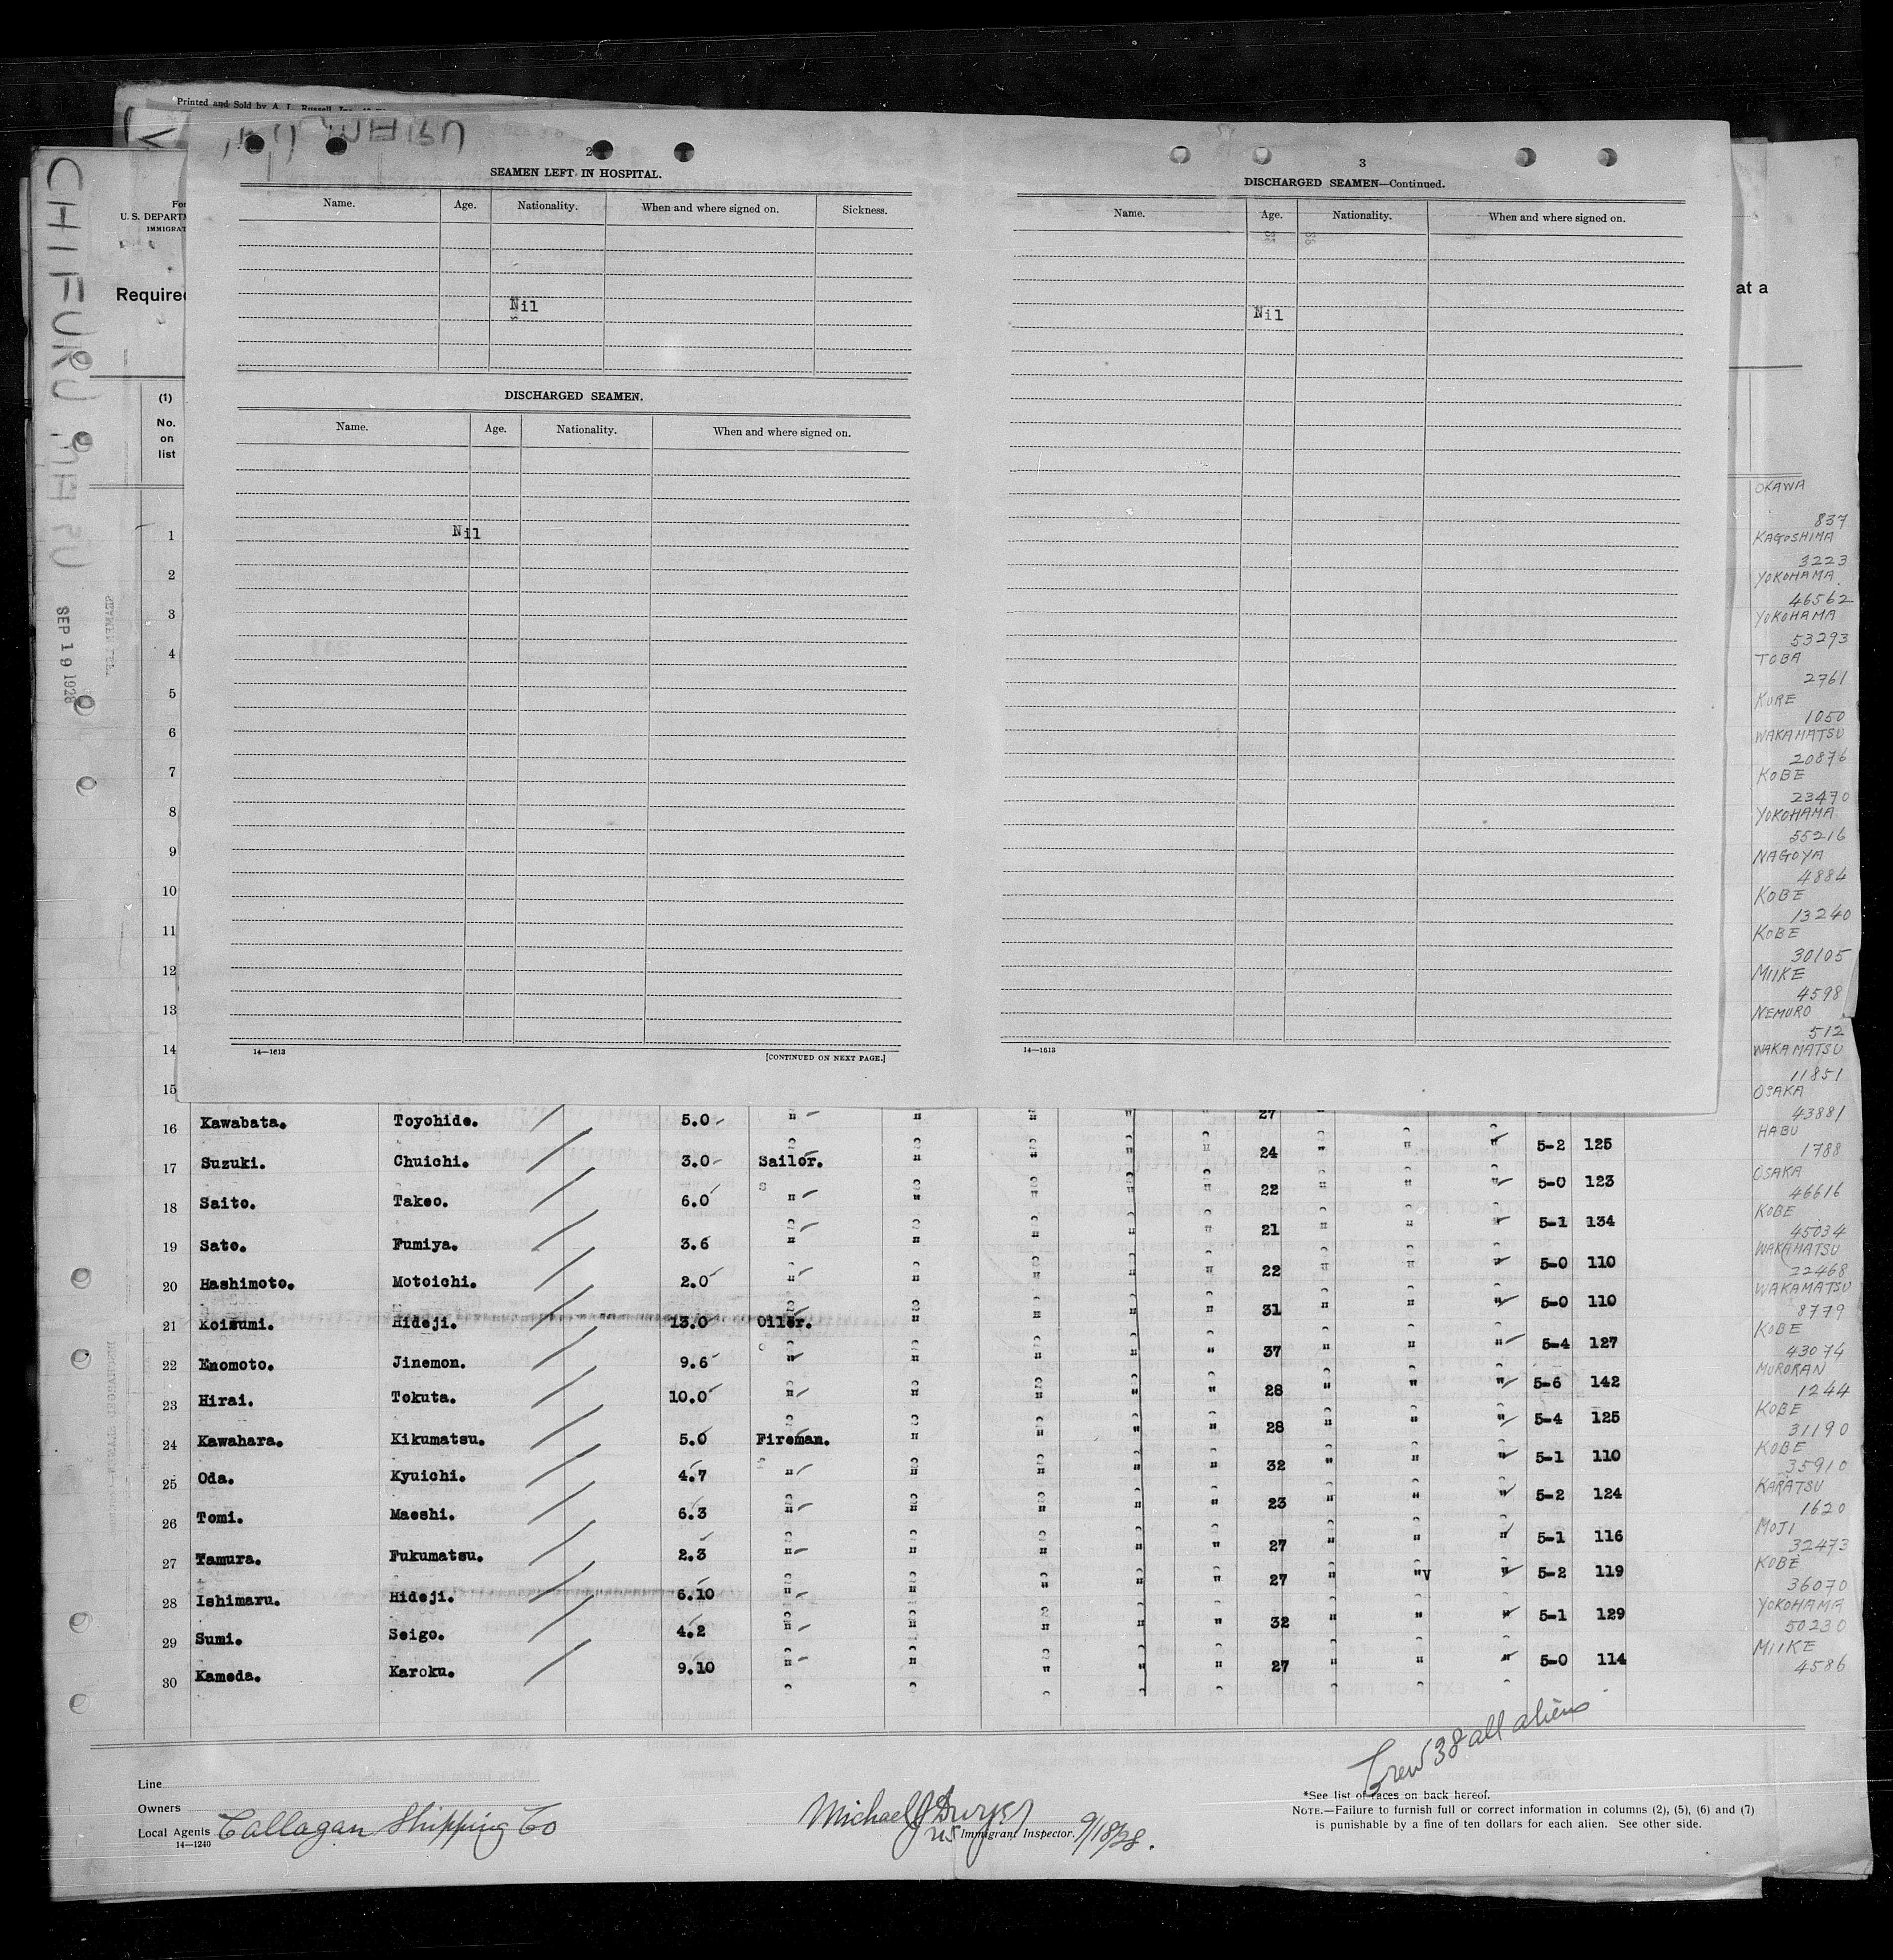 Printed and Sold by A. L. Russell, Inc.
CHIFURU MARU
SEP 19 1928
U. S. DEPARTM
IMMIGRAT
Required
at a
(1)
No.
on
list
2
SEAMEN LEFT IN HOSPITAL.
Name. Age. Nationality. When and where signed on. Sickness.
Nil
DISCHARGED SEAMEN.
Name. Age. Nationality. When and where signed on.
Nil
14—1613 [CONTINUED ON NEXT PAGE.]
3
DISCHARGED SEAMEN—Continued.
Name. Age. Nationality. When and where signed on.
Nil
14—1613
1
2
3
4
5
6
7
8
9
10
11
12
13
14
15
16 Kawabata. Toyohide. 5.0 " " " " " 27 "
17 Suzuki. Chuichi. 3.0 Sailor. " " " " 24 " " " 5-2 125
18 Saito. Takeo. 6.0 " " " " " 22 " " " 5-0 123
19 Sato. Fumiya. 3.6 " " " " " 21 " " " 5-1 134
20 Hashimoto. Motoichi. 2.0 " " " " " 22 " " " 5-0 110
21 Koizumi. Hideji. 13.0 Oiler. " " " " 31 " " " 5-0 110
22 Enomoto. Jinemon. 9.6 " " " " " 37 " " " 5-4 127
23 Hirai. Tokuta. 10.0 " " " " " 28 " " " 5-6 142
24 Kawahara. Kikumatsu. 5.0 Fireman. " " " " 28 " " " 5-4 125
25 Oda. Kyuichi. 4.7 " " " " " 32 " " " 5-1 110
26 Tomi. Maeshi. 6.3 " " " " " 23 " " " 5-2 124
27 Tamura. Fukumatsu. 2.3 " " " " " 27 " " " 5-1 116
28 Ishimaru. Hideji. 6.10 " " " " " 27 " "v " 5-2 119
29 Sumi. Seigo. 4.2 " " " " " 32 " " " 5-1 129
30 Kameda. Karoku. 9.10 " " " " " 27 " " " 5-0 114
OKAWA
837
KAGOSHIMA
3223
YOKOHAMA
46562
YOKOHAMA
53293
TOBA
2761
KURE
1050
WAKAMATSU
20876
KOBE
23470
YOKOHAMA
55216
NAGOYA
4884
KOBE
13240
KOBE
30105
MIIKE
4598
NEMURO
512
WAKAMATSU
11851
OSAKA
43881
HABU
1788
OSAKA
46616
KOBE
45034
WAKAMATSU
22468
WAKAMATSU
8779
KOBE
43074
MURORAN
1244
KOBE
31190
KOBE
35910
KARATSU
1620
MOJI
32473
KOBE
36070
YOKOHAMA
50230
MIIKE
4586
Crew 38 all aliens
Line
Owners
Local Agents Callagan Shipping Co
14—1240
Michael J Dwyer
US Immigrant Inspector. 9/18/28.
*See list of races on back hereof.
NOTE.—Failure to furnish full or correct information in columns (2), (5), (6) and (7)
is punishable by a fine of ten dollars for each alien. See other side.